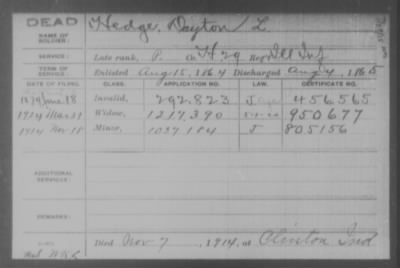 DEAD
NAME OF SOLDIER: Hedge, Dayton L
SERVICE: Late rank, P. Co. H 29 Reg't Ill Inf
TERM OF SERVICE: Enlisted Aug 15, 1864 Discharged Aug 4, 1865
DATE OF FILING. CLASS. APPLICATION NO. LAW. CERTIFICATE NO.
1879 June 18 Invalid, 292.823 456565
1914 Mar 21 Widow, 1217.390 950677
1914 Apr 18 Minor, 1037184 J 805156
ADDITIONAL SERVICES:
REMARKS:
Died Nov 7, 1914, at Clinton Ind